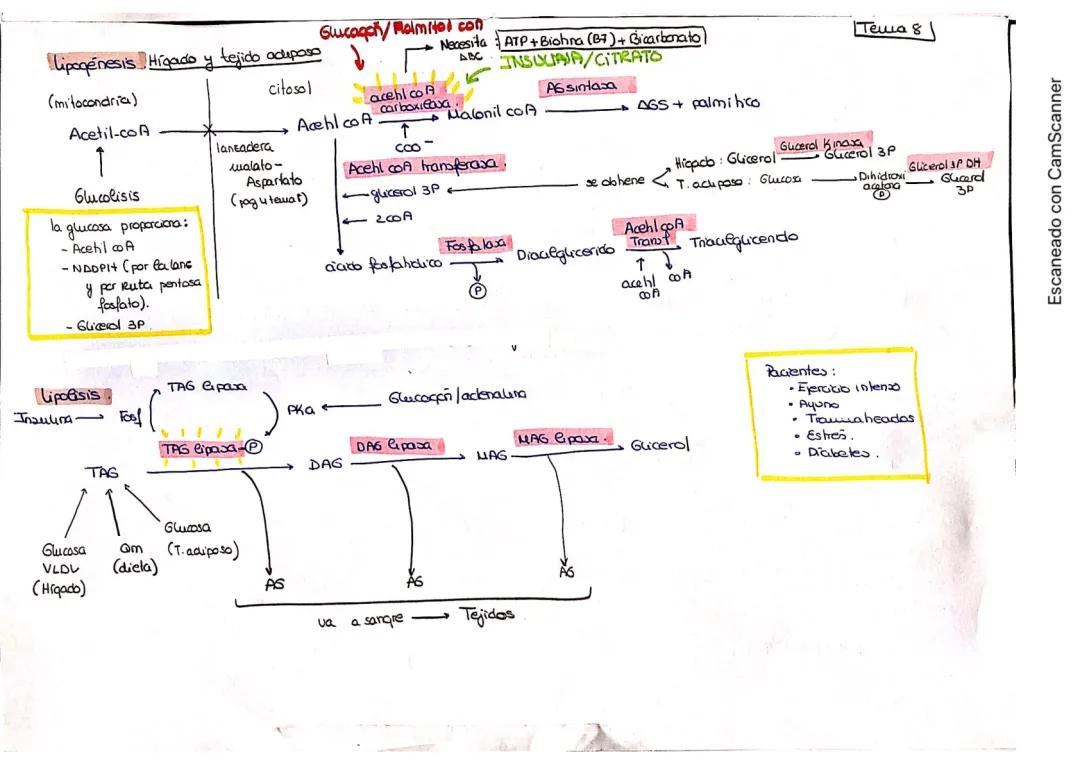 Tema 8
Glucagón/Palmitoil coA
Necesita: ATP + Biotina (B7) + Bicarbonato
ABC
INSULINA/CITRATO
Lipogénesis Hígado y tejido adiposo
(mitocondria)
citosol
acetil coA
carboxilasa.
AG sintasa
Acetil-coA
Acetil coA
Malonil coA
AGS + palmitico
COO-
lanzadera
malato-
Aspartato
Acetil coA transferasa.
Glucolisis
glicerol 3P
2 coA
se obtiene
Hígado: Glicerol
Glicerol Kinasa
Glicerol 3P
T. adiposo: Glucosa
Dihidroxi
acetona
P
Glicerol 3P DH
Glicerol
3P
la glucosa proporciona:
- Acetil coA
- NADPH (por la lanz
y por ruta pentosa
fosfato).
- Glicerol 3P.
ácido fosfatidico
Fosfatasa
P
Diacilglicerido
Acetil coA
Transf
acetil
coA
coA
Triacilglicerido
Lipolisis.
TAG lipasa
Insulina
Fosf
PKa
Glucagón/adrenalina
TAG lipasa-P
DAG lipasa
MAG lipasa.
TAG
DAG
MAG
Glicerol
Glucosa
VLDL
(Hígado)
Qm
(dieta)
Glucosa
(T. adiposo)
AG
AG
AG
va a sangre
Tejidos
Pacientes:
• Ejercicio intenso
• Ayuno
• Traumaheados
• Estrés.
• Diabetes.
Escaneado con CamScanner